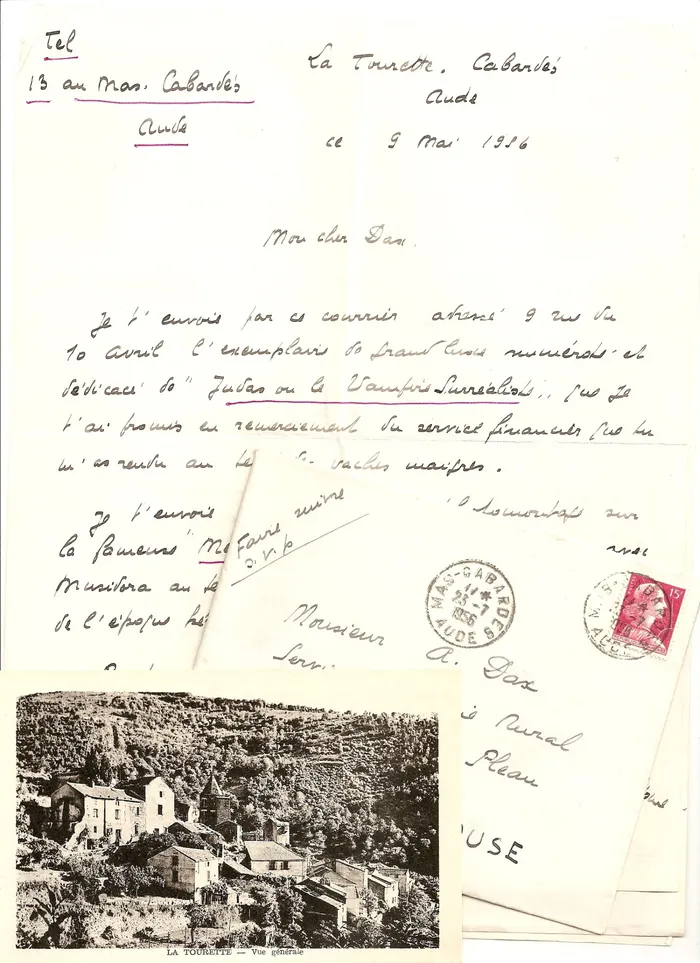 Tel
13 au Mas. Cabardès
Aude
La Tourette. Cabardès
Aude
ce 9 Mai 1956
Mon cher Dax.
Je t'envois par ce courrier adressé 9 rue du
10 avril l'exemplaire de grand luxe numéroté et
dédicacé de "Judas ou le Vampire Surréaliste", que je
t'ai promis en remerciement du service financier que tu
m'as rendu au te de vaches maigres.
Je t'envois
sur
la fameuse "Me
avec
Musidora au te
de l'époque hé
Faire suivre
s.v.p
MAS-CABARDES
11 *
23-7
1956
AUDE
15F
Monsieur A. Dax
Serv
Rural
Pleau
OUSE
LA TOURETTE — Vue générale